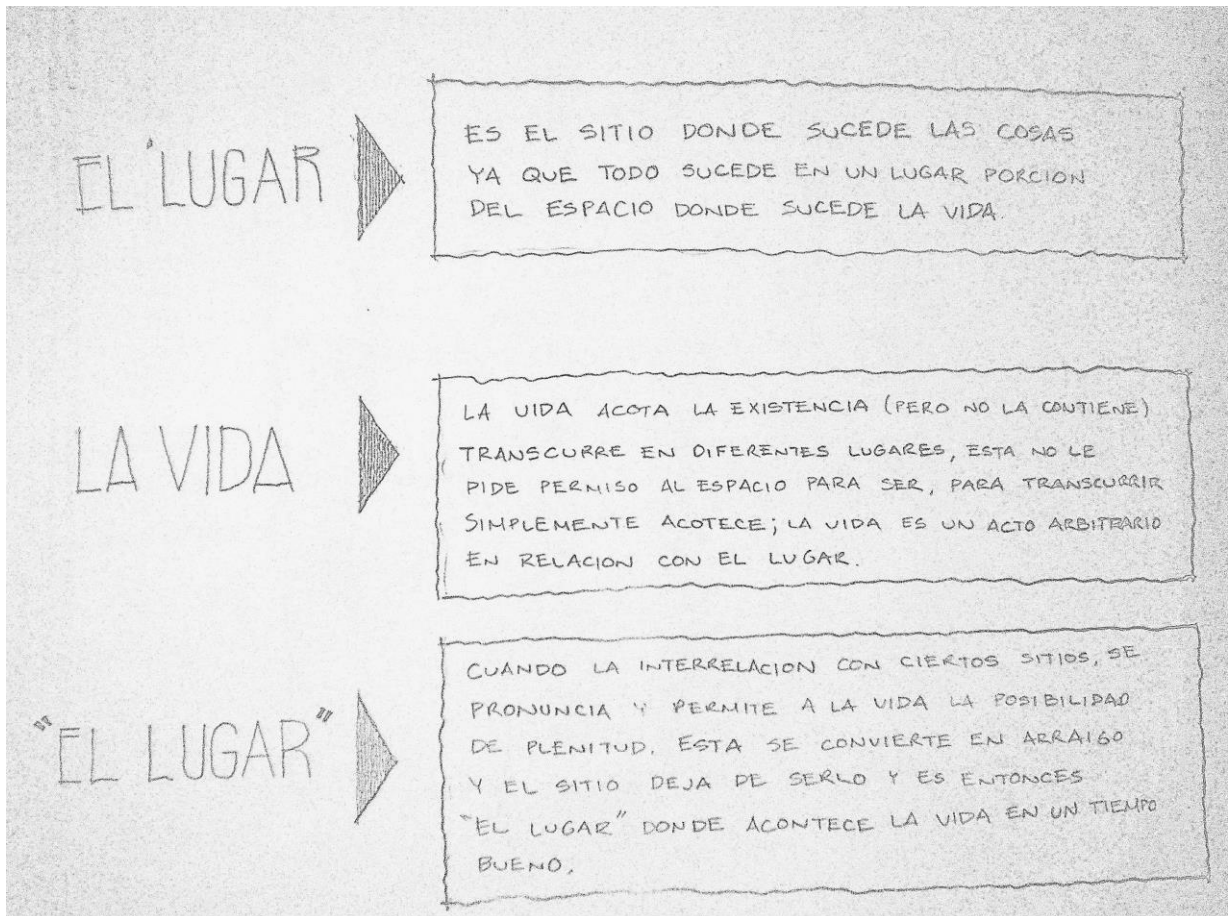 EL LUGAR
ES EL SITIO DONDE SUCEDE LAS COSAS
YA QUE TODO SUCEDE EN UN LUGAR PORCION
DEL ESPACIO DONDE SUCEDE LA VIDA.
LA VIDA
LA VIDA ACOTA LA EXISTENCIA (PERO NO LA CONTIENE)
TRANSCURRE EN DIFERENTES LUGARES, ESTA NO LE
PIDE PERMISO AL ESPACIO PARA SER, PARA TRANSCURRIR
SIMPLEMENTE ACOTECE; LA VIDA ES UN ACTO ARBITRARIO
EN RELACION CON EL LUGAR.
"EL LUGAR"
CUANDO LA INTERRELACION CON CIERTOS SITIOS, SE
PRONUNCIA Y PERMITE A LA VIDA LA POSIBILIDAD
DE PLENITUD. ESTA SE CONVIERTE EN ARRAIGO
Y EL SITIO DEJA DE SERLO Y ES ENTONCES
"EL LUGAR" DONDE ACONTECE LA VIDA EN UN TIEMPO
BUENO.